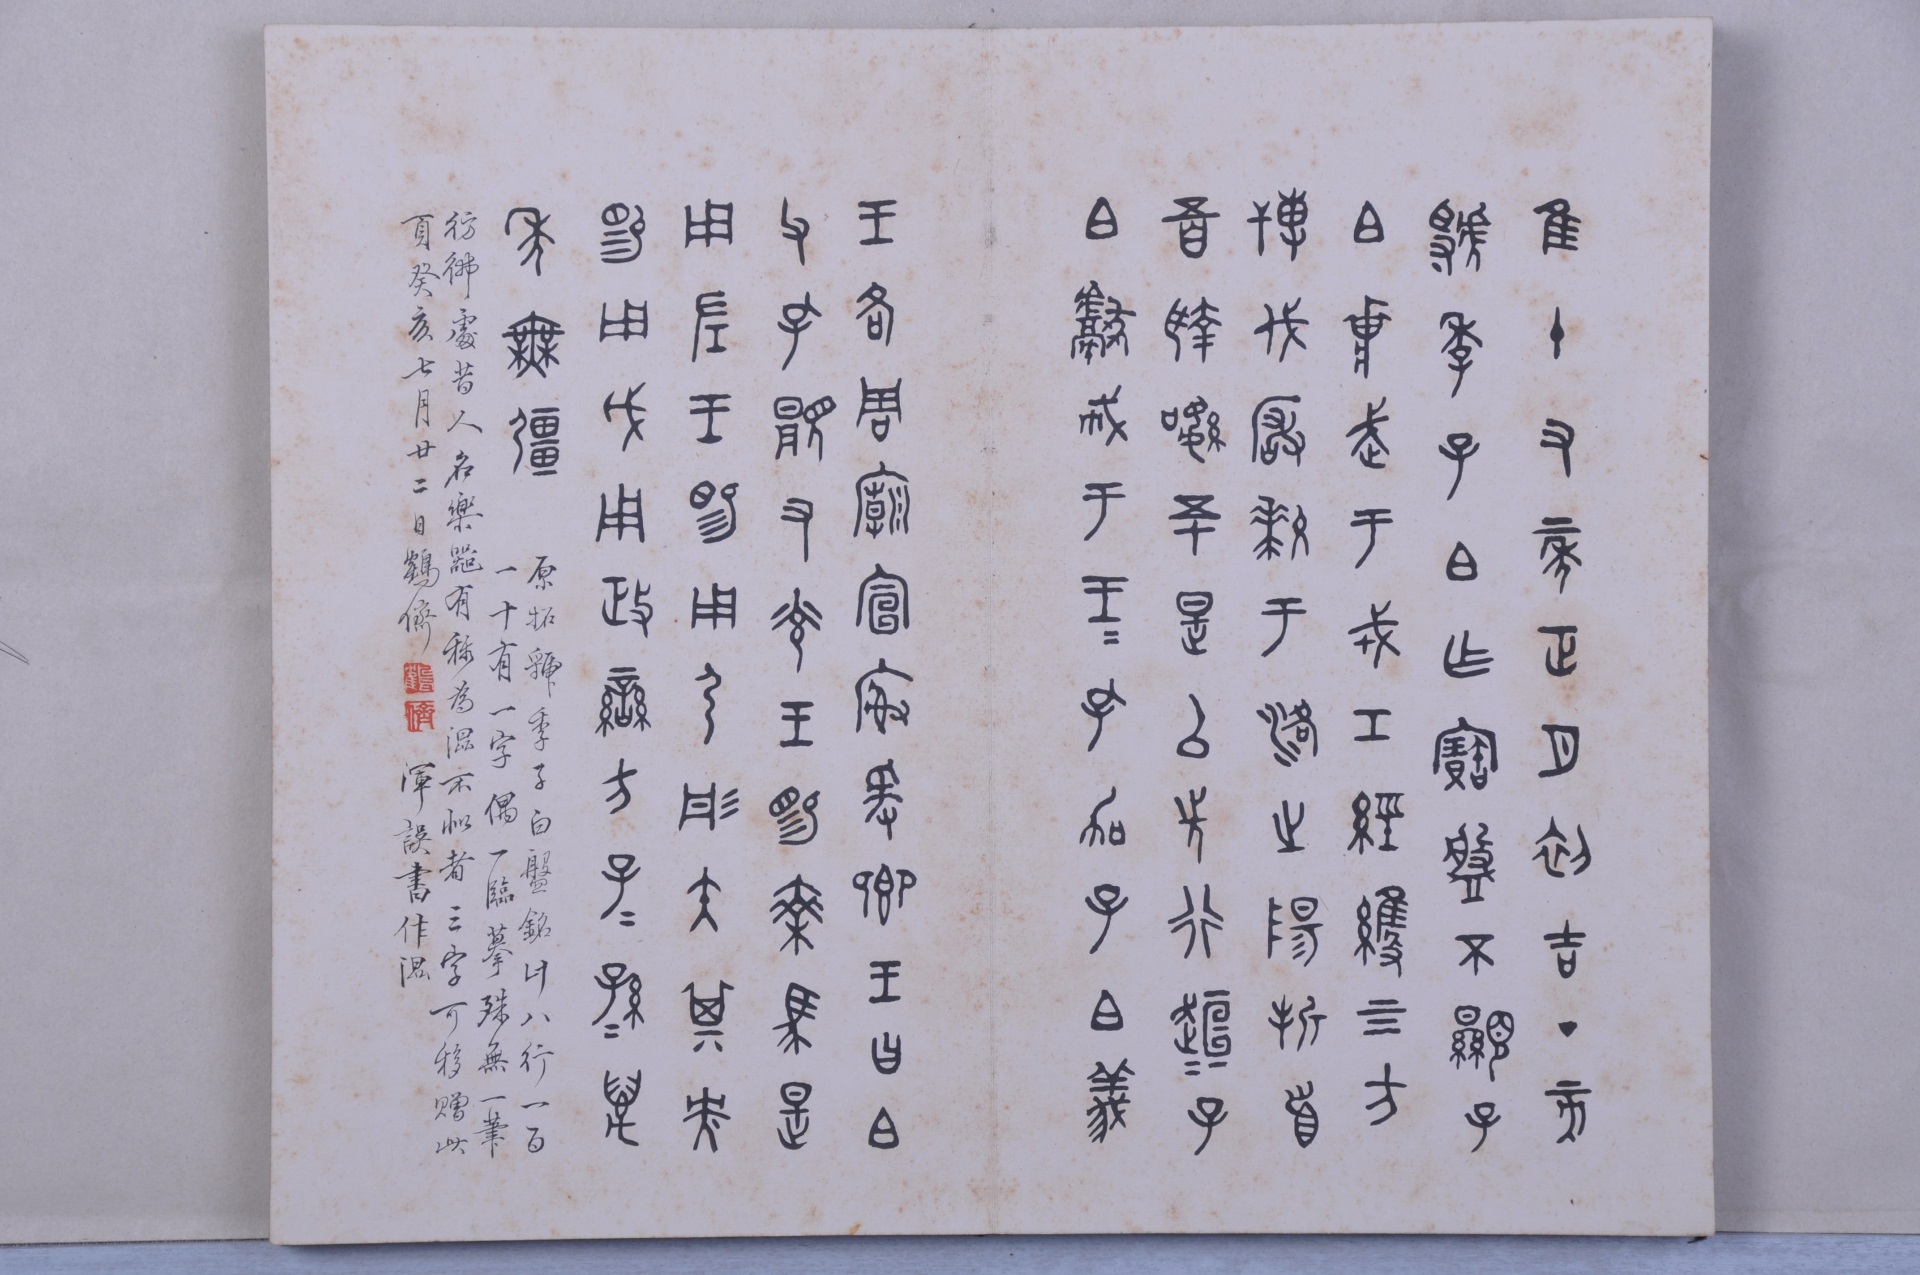 隹十又二年正月初吉丁亥
虢季子白乍寶盤不顯子
白𤕌武于戎工經維四方
博伐𤞤𤜓于洛之陽折首
五百執訊五十是以先行趄=子
白獻戒于王=孔加子白義
王各周廟宣榭爰卿王曰白
父孔覭又光王賜乘馬是
用左王賜用弓彤矢其央
賜用戉用政蠻方子=孫=萬
年無彊
原拓虢季子白盤銘計八行一百
一十有一字偶一臨摹殊無一筆
彷彿處昔人名樂器有稱為溫不似者三字可移贈此
頁癸亥七月廿二日鶴儕
渾誤書作溫